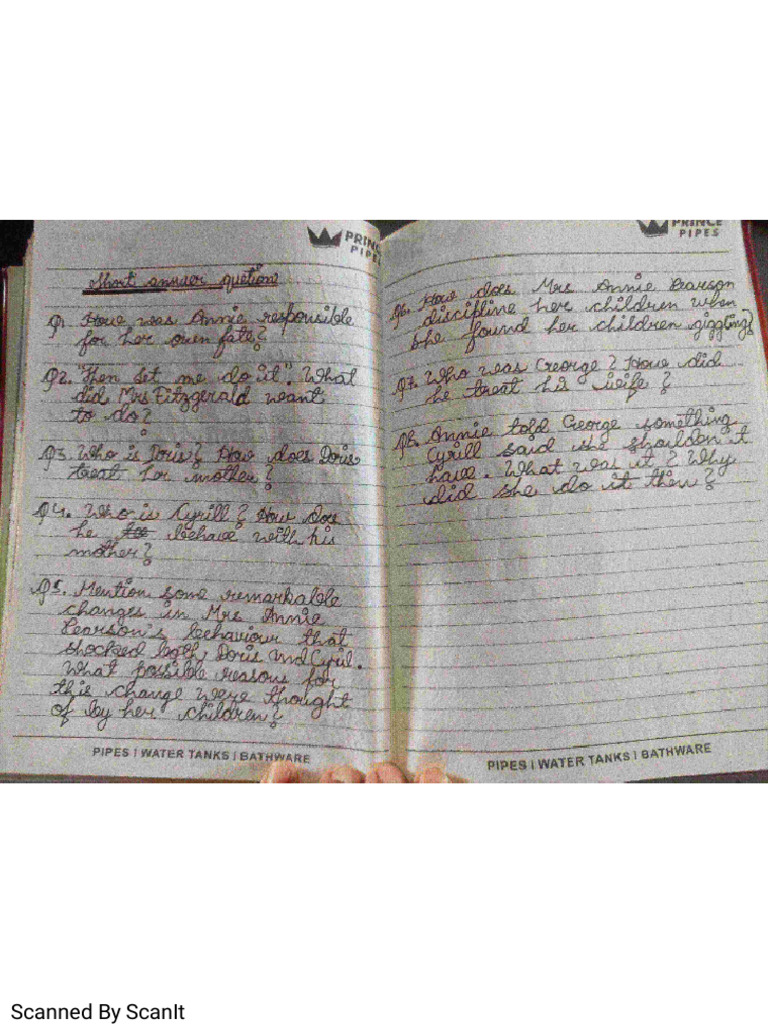 PRINCE
PIPES
Short answer quetions
Q1. How was Annie responsible
for her own fate?
Q2. "Then let me do it". What
did Mrs Fitzgerald want
to do?
Q3. Who is Doris? How does Doris
treat her mother?
Q4. Who is Cyrill? How does
he behave with his
mother?
Q5. Mention some remarkable
changes in Mrs Annie
Pearson's behaviour that
shocked both, Doris and Cyril.
What possible reasons for
this change were thought
of by her children?
PIPES | WATER TANKS | BATHWARE
PRINCE
PIPES
Q6. How does Mrs Annie Pearson
discipline her children when
she found her children giggling?
Q7. Who was George? How did
he treat his wife?
Q8. Annie told George something
Cyrill said she shouldn't
have. What was it? Why
did she do it then?
PIPES | WATER TANKS | BATHWARE
Scanned By ScanIt